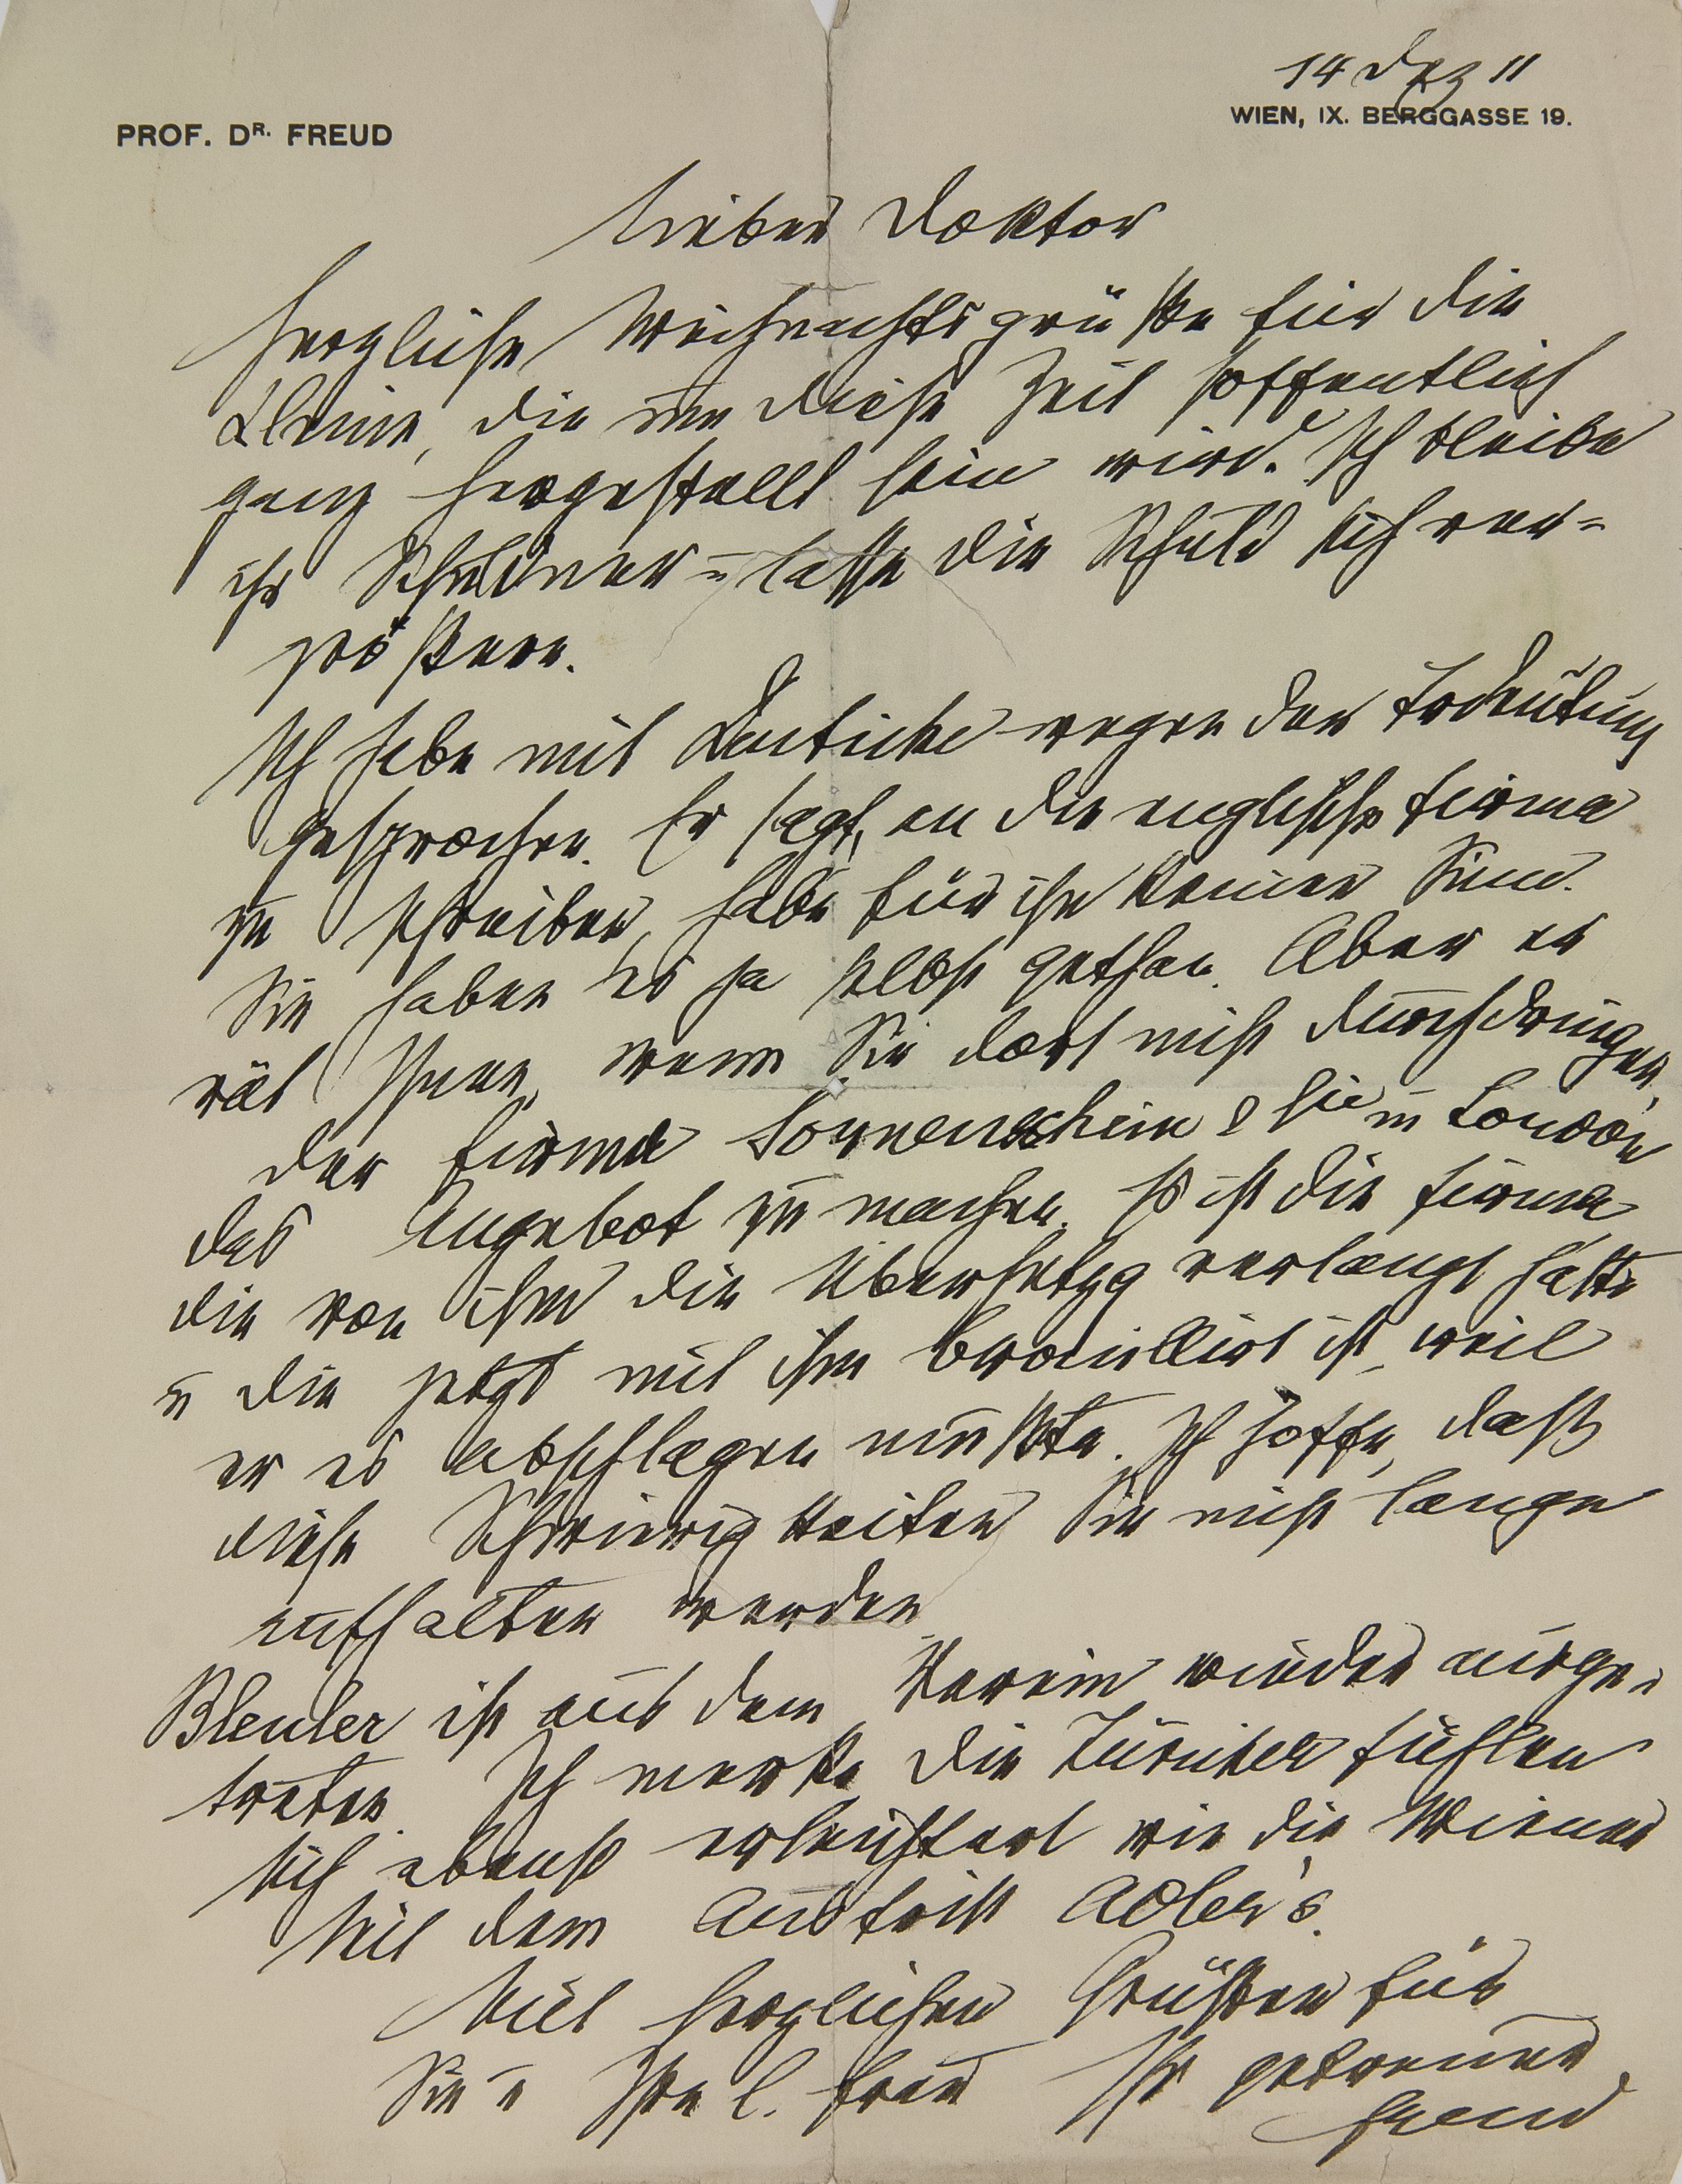 14 Dez 11
PROF. DR. FREUD
WIEN, IX. BERGGASSE 19.
Lieber Doktor
Herzliche Weihnachtsgrüße für die
Kleine, die um diese Zeit hoffentlich
ganz hergestellt sein wird. Ich bleibe
ihr Schuldner u lasse die Schuld sich ver=
größern.
Ich habe mit Deuticke wegen der Trdeutung
gesprochen. Er sagt, an die englische Firma
zu schreiben, habe für ihn keinen Sinn.
Sie haben es ja selbst gethan. Aber er
rät Ihnen, wenn Sie dort nicht durchdringen,
der Firma Sonnenschein & Cie in London
das Angebot zu machen. Es ist die Firma
die von ihm die Übersetzg verlangt hatte
u die jetzt mit ihm brouillirt ist, weil
er es abschlagen mußte. Ich hoffe, daß
diese Schwierigkeiten Sie nicht lange
aufhalten werden
Bleuler ist aus dem Verein wieder ausge-
treten. Ich merke, die Züricher fühlen
sich ebenso erleichtert wie die Wiener
seit dem Austritt Adler's.
Mit herzlichen Grüßen für
Sie u Ihre l. Frau Ihr getreuer
Freud